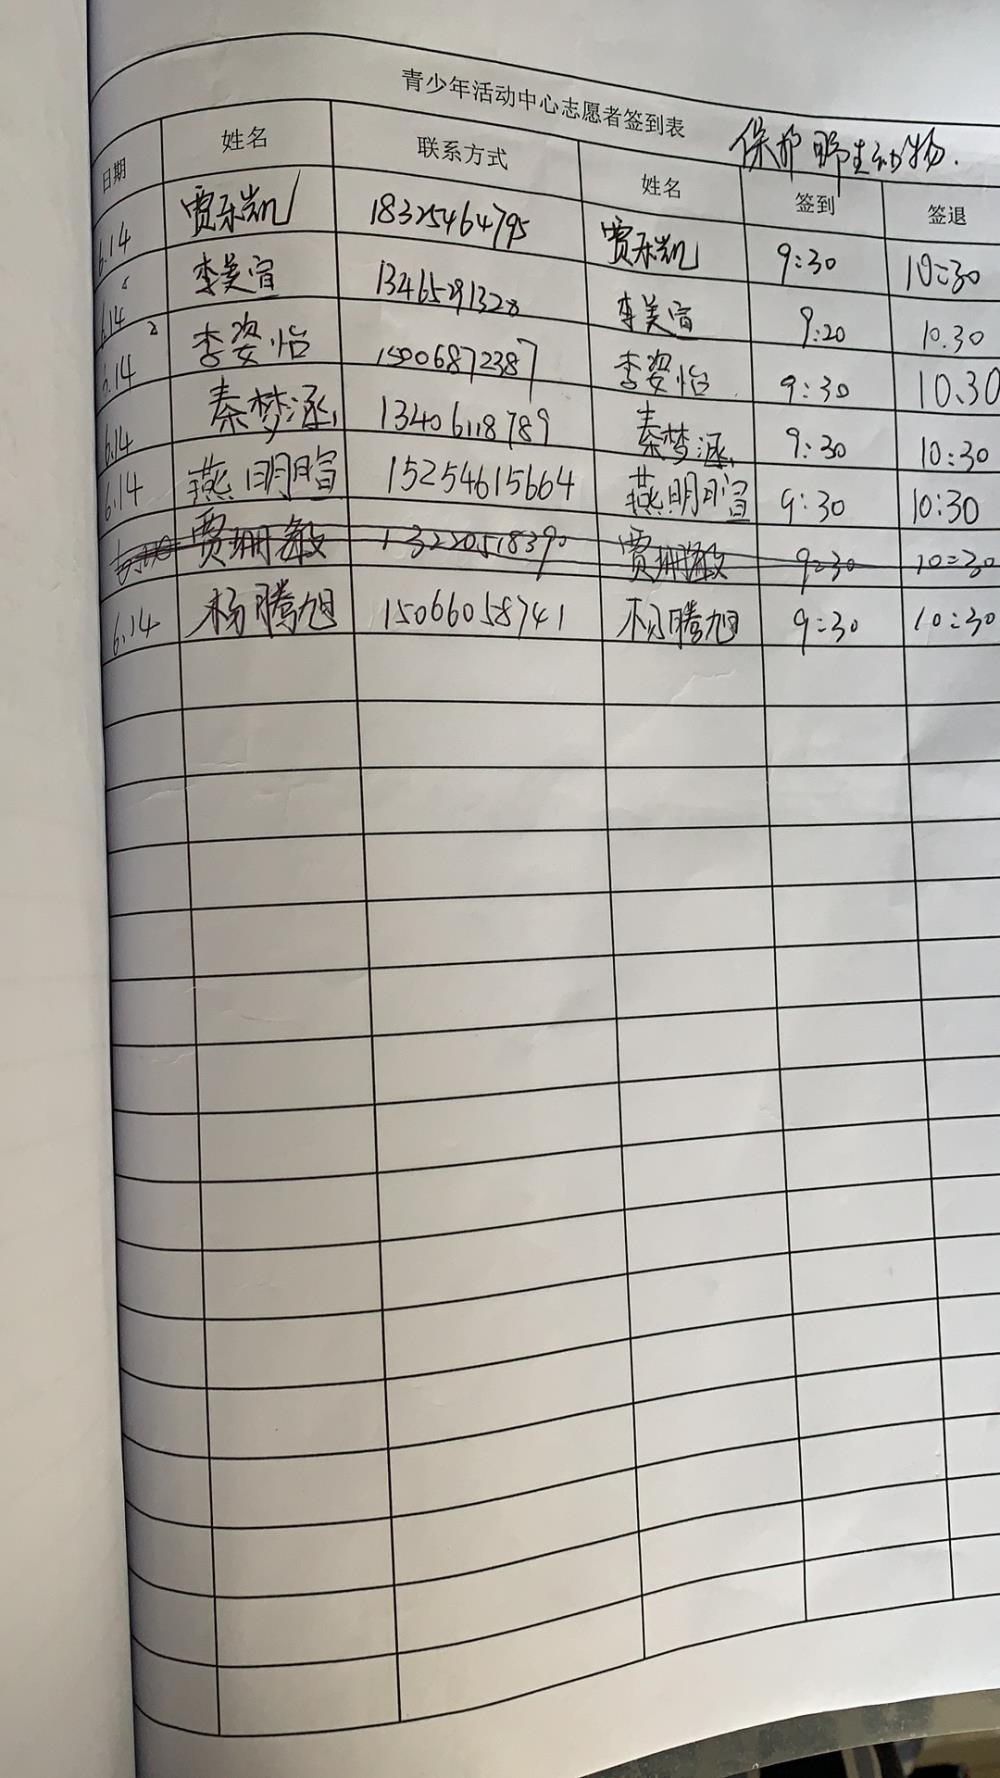 青少年活动中心志愿者签到表 保护野生动物.
日期 姓名 联系方式 姓名 签到 签退
6.14 贾乐凯 18325464795 贾乐凯 9:30 10:30
6.14 李美宣 13465291328 李美宣 9:20 10.30
6.14 李姿怡 15006872387 李姿怡 9:30 10.30
6.14 秦梦涵 13406118789 秦梦涵 9:30 10:30
6.14 燕明暄 15254615664 燕明暄 9:30 10:30
贾珊敏 13220518390 贾珊敏 9:30 10:30
6.14 杨腾旭 15066058741 杨腾旭 9:30 10:30